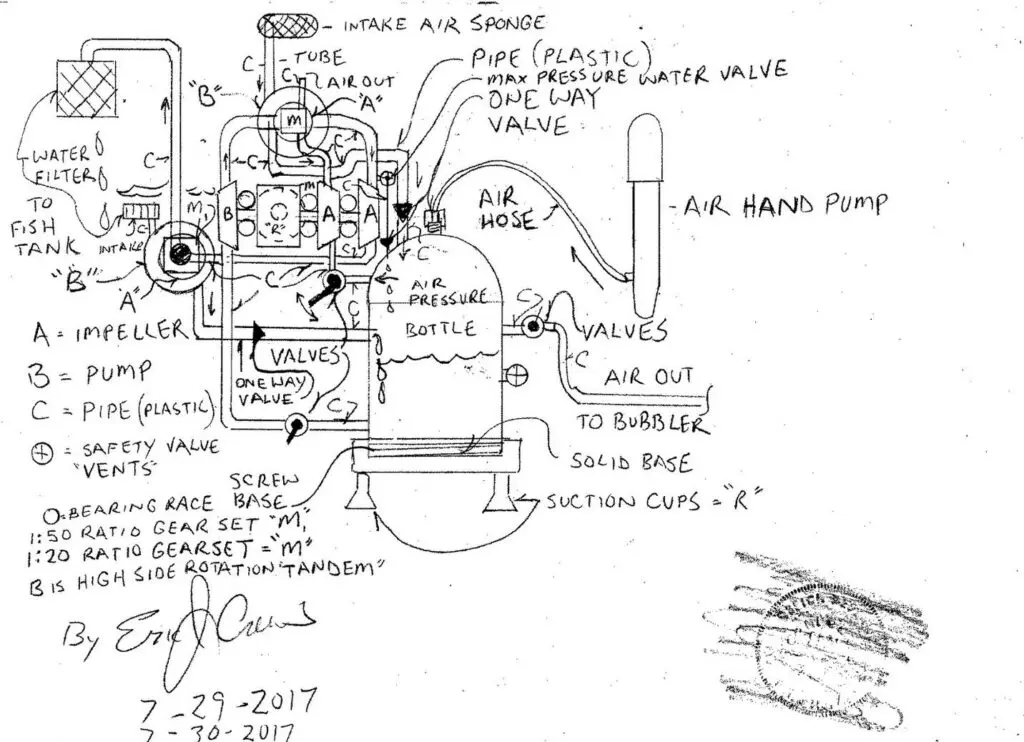 INTAKE AIR SPONGE
TUBE
C
AIR OUT
"B"
"A"
M
PIPE (PLASTIC)
MAX PRESSURE WATER VALVE
ONE WAY
VALVE
WATER
FILTER
C
TO
FISH
TANK
INTAKE
"B"
"A"
M,
B
"R"
M
A
A
C
AIR
HOSE
AIR HAND PUMP
AIR
PRESSURE
BOTTLE
C
VALVES
C
AIR OUT
TO BUBBLER
VALVES
ONE WAY
VALVE
C
SOLID BASE
SCREW
BASE
SUCTION CUPS = "R"
A = IMPELLER
B = PUMP
C = PIPE (PLASTIC)
⊕ = SAFETY VALVE
"VENTS"
O=BEARING RACE
1:50 RATIO GEAR SET "M,"
1:20 RATIO GEARSET = "M"
B IS HIGH SIDE ROTATION "TANDEM"
By Eric J
7-29-2017
7-30-2017